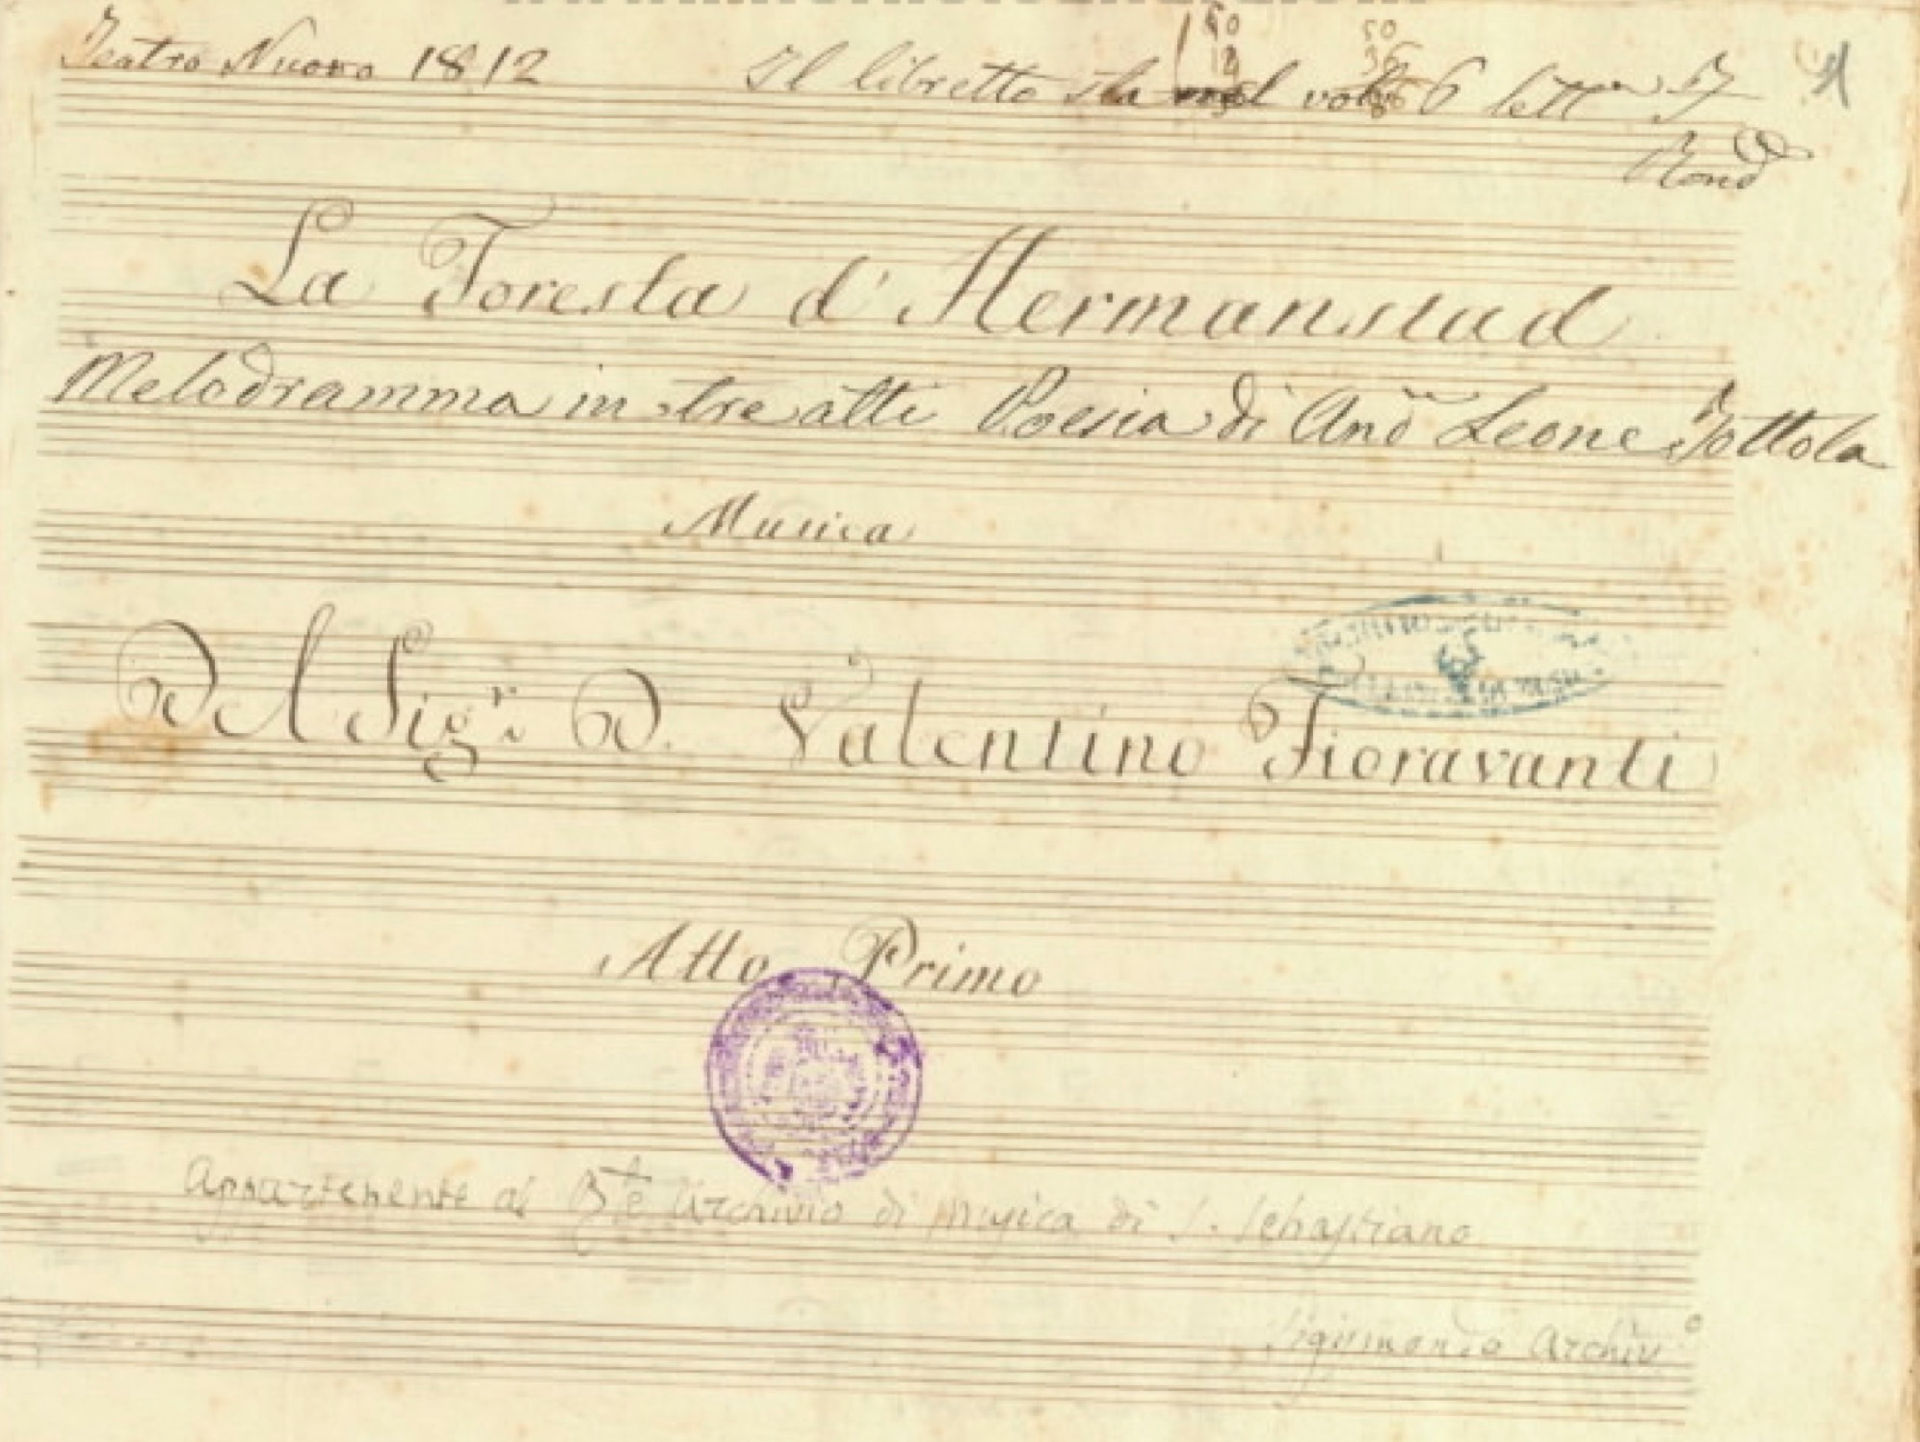 Teatro Nuovo 1812 Il libretto sta nel vol 6 lett.
Rond
La Foresta d'Hermanstad
Melodramma in tre atti Poesia di And Leone Tottola
Musica
Del Sigr. D. Valentino Fioravanti
Atto Primo
Appartenente al Rle Archivio di Musica di S. Sebastiano
Sigismondo Archivo